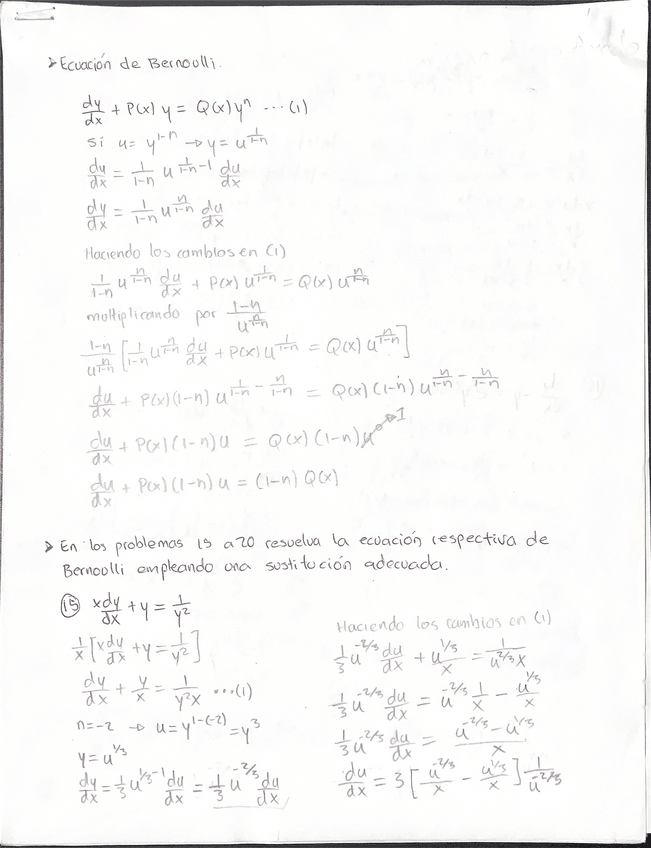 ➤ Ecuación de Bernoulli.
dy/dx + P(x) y = Q(x) yⁿ ...(1)
si u = y^(1-n) → y = u^(1/(1-n))
dy/dx = 1/(1-n) u^(1/(1-n) - 1) du/dx
dy/dx = 1/(1-n) u^(n/(1-n)) du/dx
Haciendo los cambios en (1)
1/(1-n) u^(n/(1-n)) du/dx + P(x) u^(1/(1-n)) = Q(x) u^(n/(1-n))
moltiplicando por (1-n)/u^(n/(1-n))
(1-n)/u^(n/(1-n)) [1/(1-n) u^(n/(1-n)) du/dx + P(x) u^(1/(1-n)) = Q(x) u^(n/(1-n))]
du/dx + P(x)(1-n) u^(1/(1-n) - n/(1-n)) = Q(x) (1-n) u^(n/(1-n) - n/(1-n))
du/dx + P(x) (1-n) u = Q(x) (1-n) u⁰ → 1
du/dx + P(x) (1-n) u = (1-n) Q(x)
➤ En los problemas 15 a 20 resuelva la ecuación respectiva de
Bernoulli empleando una sustitución adecuada.
(15) x dy/dx + y = 1/y²
1/x [x dy/dx + y = 1/y²]
dy/dx + y/x = 1/(y²x) ...(1)
n = -2 → u = y^(1-(-2)) = y³
y = u^(1/3)
dy/dx = 1/3 u^(1/3 - 1) du/dx = 1/3 u^(-2/3) du/dx
Haciendo los cambios en (1)
1/3 u^(-2/3) du/dx + u^(1/3)/x = 1/(u^(2/3) x)
1/3 u^(-2/3) du/dx = u^(-2/3) 1/x - u^(1/3)/x
1/3 u^(-2/3) du/dx = (u^(-2/3) - u^(1/3))/x
du/dx = 3 [u^(-2/3)/x - u^(1/3)/x] 1/u^(-2/3)